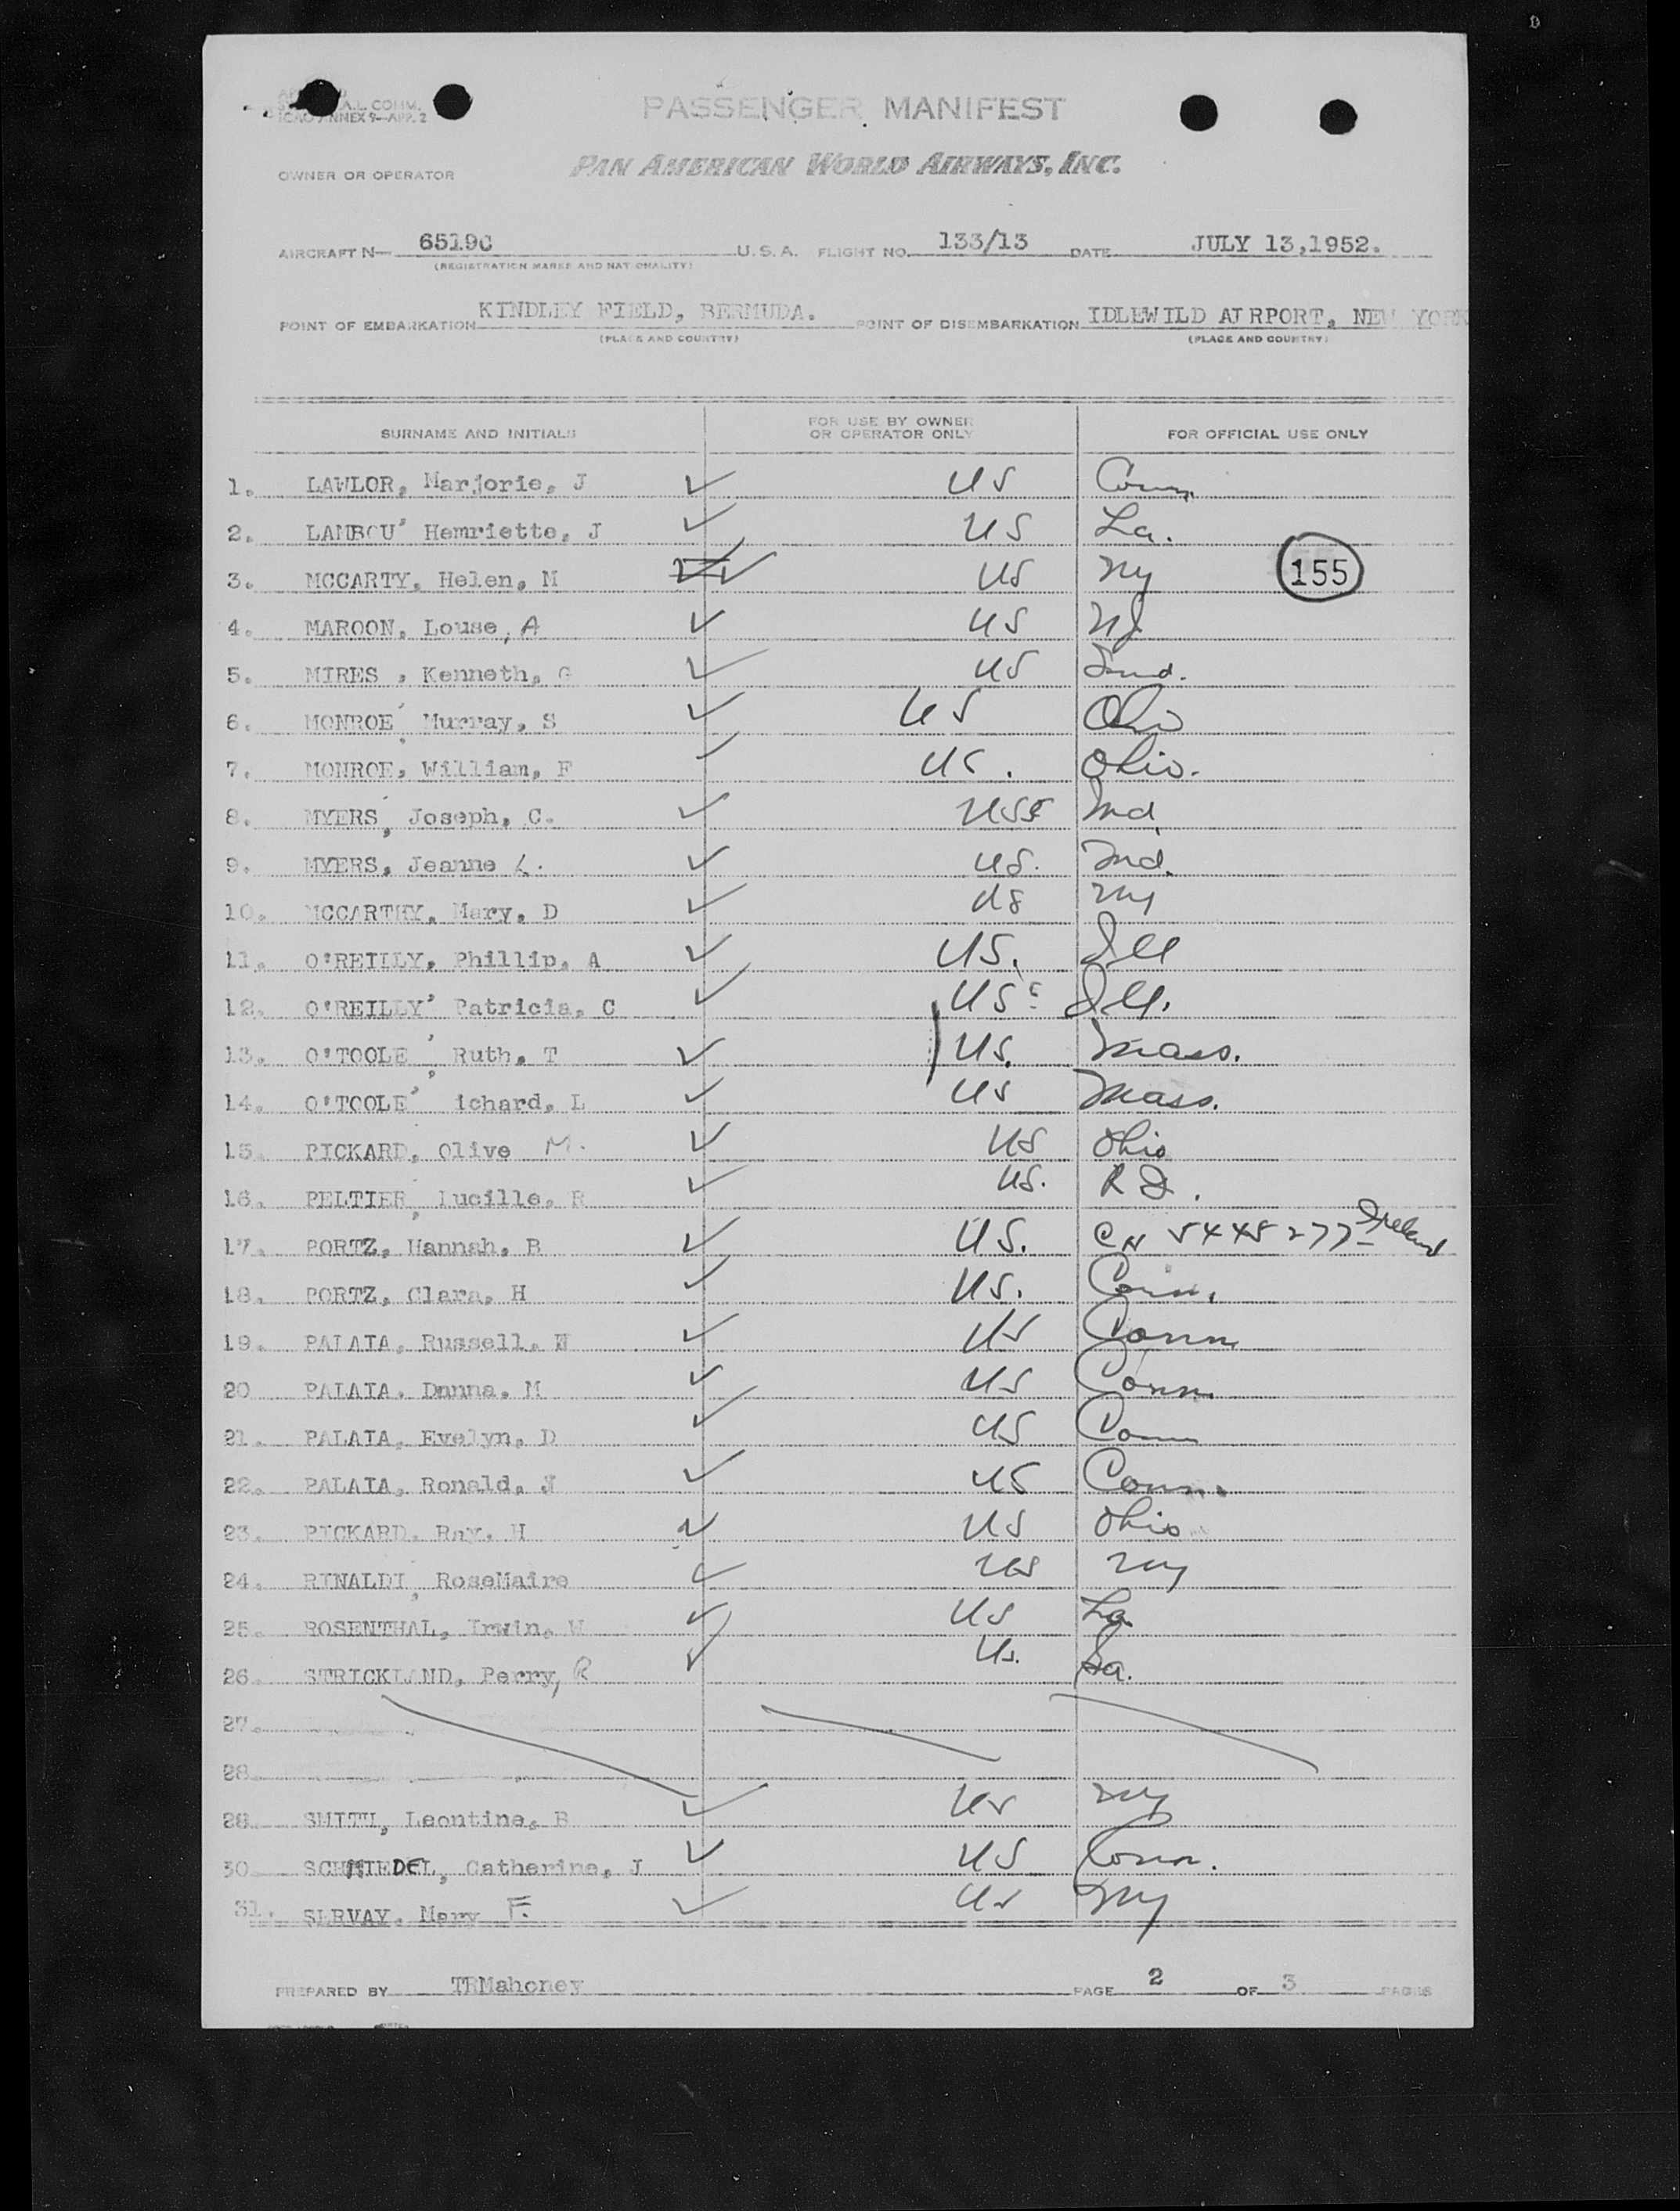 A.L. COMM.
ICAO ANNEX 9—APP. 2
PASSENGER MANIFEST
OWNER OR OPERATOR PAN AMERICAN WORLD AIRWAYS, INC.
AIRCRAFT N— 65190 U. S. A. FLIGHT NO. 133/13 DATE JULY 13,1952.
(REGISTRATION MARKS AND NATIONALITY)
POINT OF EMBARKATION KINDLEY FIELD, BERMUDA. POINT OF DISEMBARKATION IDLEWILD AIRPORT, NEW YORK
(PLACE AND COUNTRY) (PLACE AND COUNTRY)
SURNAME AND INITIALS FOR USE BY OWNER OR OPERATOR ONLY FOR OFFICIAL USE ONLY
1. LAWLOR, Marjorie, J ✓ US Conn
2. LAMBOU' Hemriette, J ✓ US La.
3. MCCARTY, Helen, M ✓ US Ny 155
4. MAROON, Louse, A ✓ US NJ
5. MIRES , Kenneth, G ✓ US Ind.
6. MONROE' Murray, S ✓ US Ohio
7. MONROE, William, F ✓ US. Ohio.
8. MYERS, Joseph, C. ✓ US Ind
9. MYERS, Jeanne L. ✓ US. Ind.
10. MCCARTHY, Mary, D ✓ US Ny
11. O'REILLY, Phillip, A ✓ US. Ill
12. O'REILLY' Patricia, C ✓ US Ill.
13. O'TOOLE ' Ruth, T ✓ US. Mass.
14. O'TOOLE' ichard, L ✓ US Mass.
15. PICKARD, Olive M. ✓ US Ohio
16. PELTIER, Lucille, R ✓ US. R I.
17. PORTZ, Hannah, B ✓ US. CN 5445277 Ireland
18. PORTZ, Clara, H ✓ US. Conn.
19. PALAIA, Russell, N ✓ US Conn
20 PALAIA, Dnnna, M ✓ US Conn.
21. PALAIA, Evelyn, D ✓ US Conn
22. PALAIA, Ronald, N ✓ US Conn.
23. PICKARD, Ray, H ✓ US Ohio
24. RINALDI, RoseMaire ✓ US Ny
25. ROSENTHAL, Irwin, W ✓ US La
26. STRICKLAND, Perry, R ✓ US. La.
27.
28
28 SMITH, Leontine, B ✓ US Ny
30 SCHMIEDEL, Catherine, J ✓ US Conn.
31. SERVAY, Mary F. ✓ US Ny
PREPARED BY TRMahoney PAGE 2 OF 3 PAGES